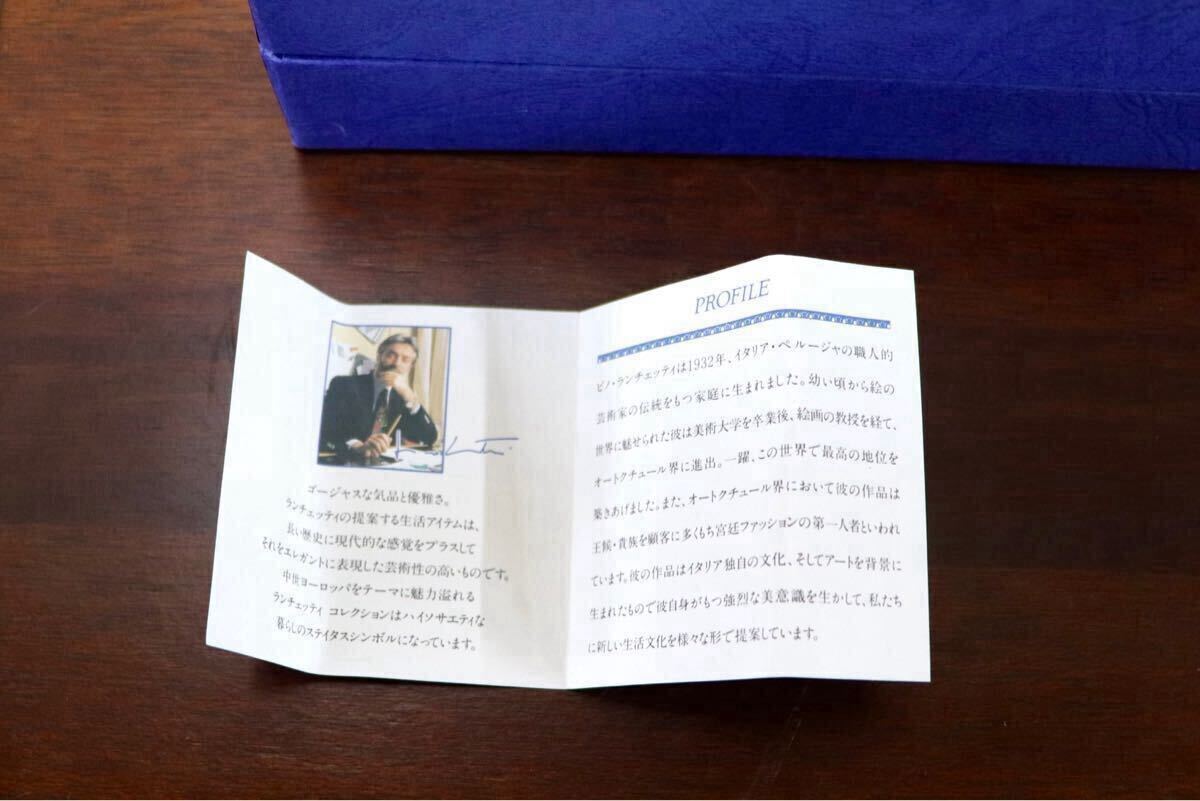 ゴージャスな気品と優雅さ。
ランチェッティの提案する生活アイテムは、
長い歴史に現代的な感覚をプラスして
それをエレガントに表現した芸術性の高いものです。
中世ヨーロッパをテーマに魅力溢れる
ランチェッティ コレクションはハイソサエティな
暮らしのステイタスシンボルになっています。
PROFILE
ピノ・ランチェッティは1932年、イタリア・ペルージャの職人的
芸術家の伝統をもつ家庭に生まれました。幼い頃から絵の
世界に魅せられた彼は美術大学を卒業後、絵画の教授を経て、
オートクチュール界に進出。一躍、この世界で最高の地位を
築きあげました。また、オートクチュール界において彼の作品は
王候・貴族を顧客に多くもち宮廷ファッションの第一人者といわれ
ています。彼の作品はイタリア独自の文化、そしてアートを背景に
生まれたもので彼自身がもつ強烈な美意識を生かして、私たち
に新しい生活文化を様々な形で提案しています。